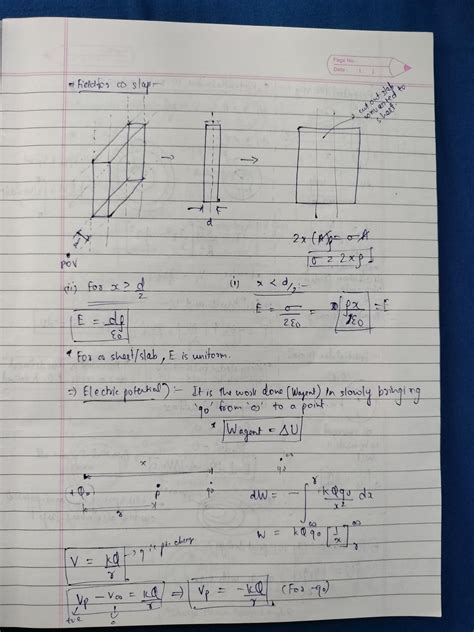 Page No.
Date
⇒ Field for ∞ slab:-
cut out slab
converted to
sheet
d
d
POV
2x(A)ρ = σA
σ = 2xρ
(ii) for x > d/2
(i) x < d/2 :-
E = dρ/ε0
E = σ/2ε0 = ρx/ε0 = E
* For ∞ sheet/slab, E is uniform.
⇒ Electric potential :- It is the work done (Wagent) in slowly bringing
'q0' from '∞' to a point.
* Wagent = ΔU
x
∞
(+Q) P q0
r
dW = - ∫ kQq0/x² dx
W = kQq0 [1/x]
V = kQ/r
Vp - V∞ = kQ/r ⇒ Vp = -kQ/r (For -q0)
+ve 0